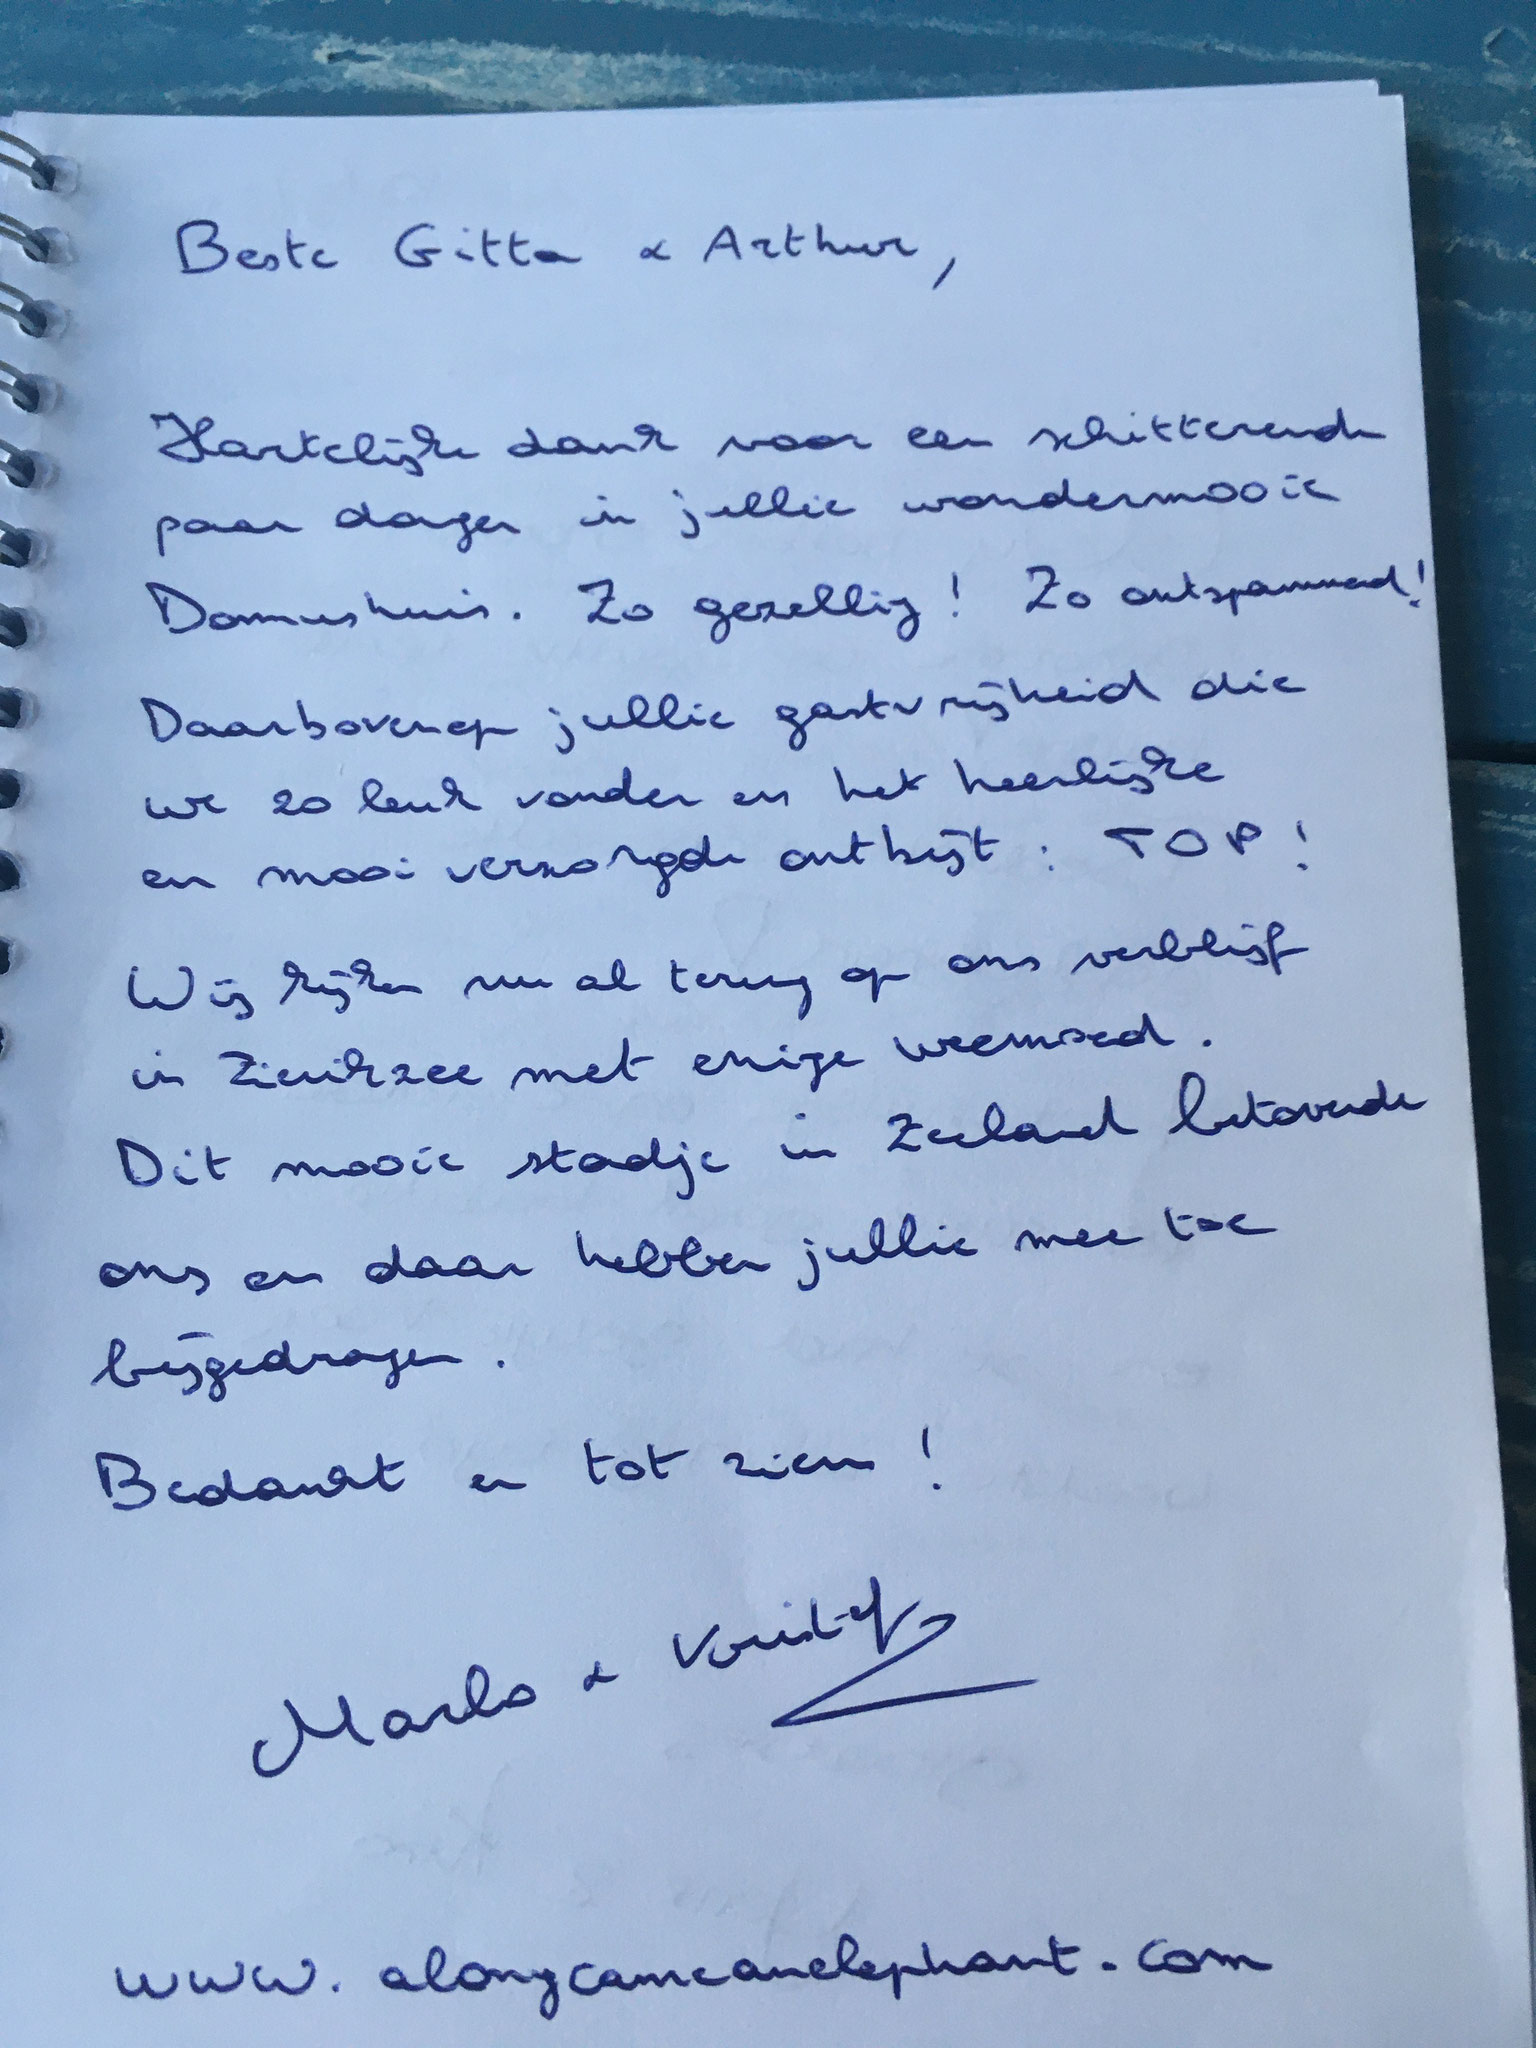 Beste Gitta & Arthur,
Hartelijke dank voor een schitterende
paar dagen in jullie wondermooie
Domushuis. Zo gezellig! Zo ontspannend!
Daarbovenop jullie gastvrijheid die
we zo leuk vonden en het heerlijke
en mooi verzorgde ontbijt: TOP!
Wij kijken nu al terug op ons verblijf
in Zierikzee met enige weemoed.
Dit mooie stadje in Zeeland betoverde
ons en daar hebben jullie mee toe
bijgedragen.
Bedankt en tot ziens!
&
www.alongcameanelephant.com